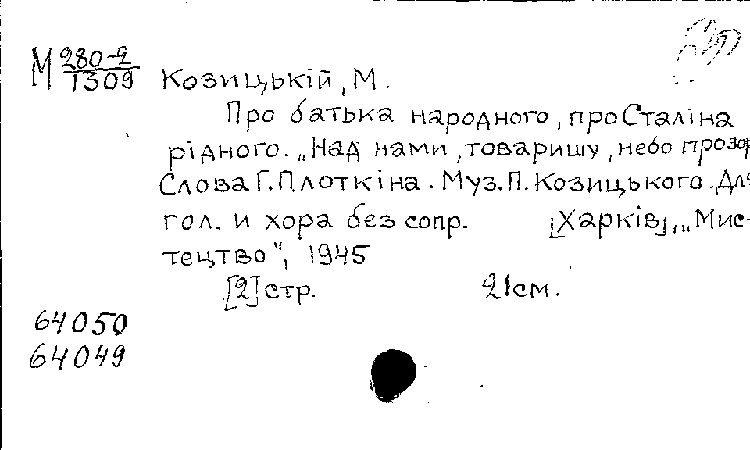 М 280-2
1309
Козицькій, М.
Про батька народного, про Сталіна
рідного. „Над нами, товаришу, небо прозор
Слова Г. Плоткіна. Муз. П. Козицького. Для
гол. и хора без сопр. [Харків], „Мис-
тецтво", 1945
[2] стр. 21 см.
64050
64049